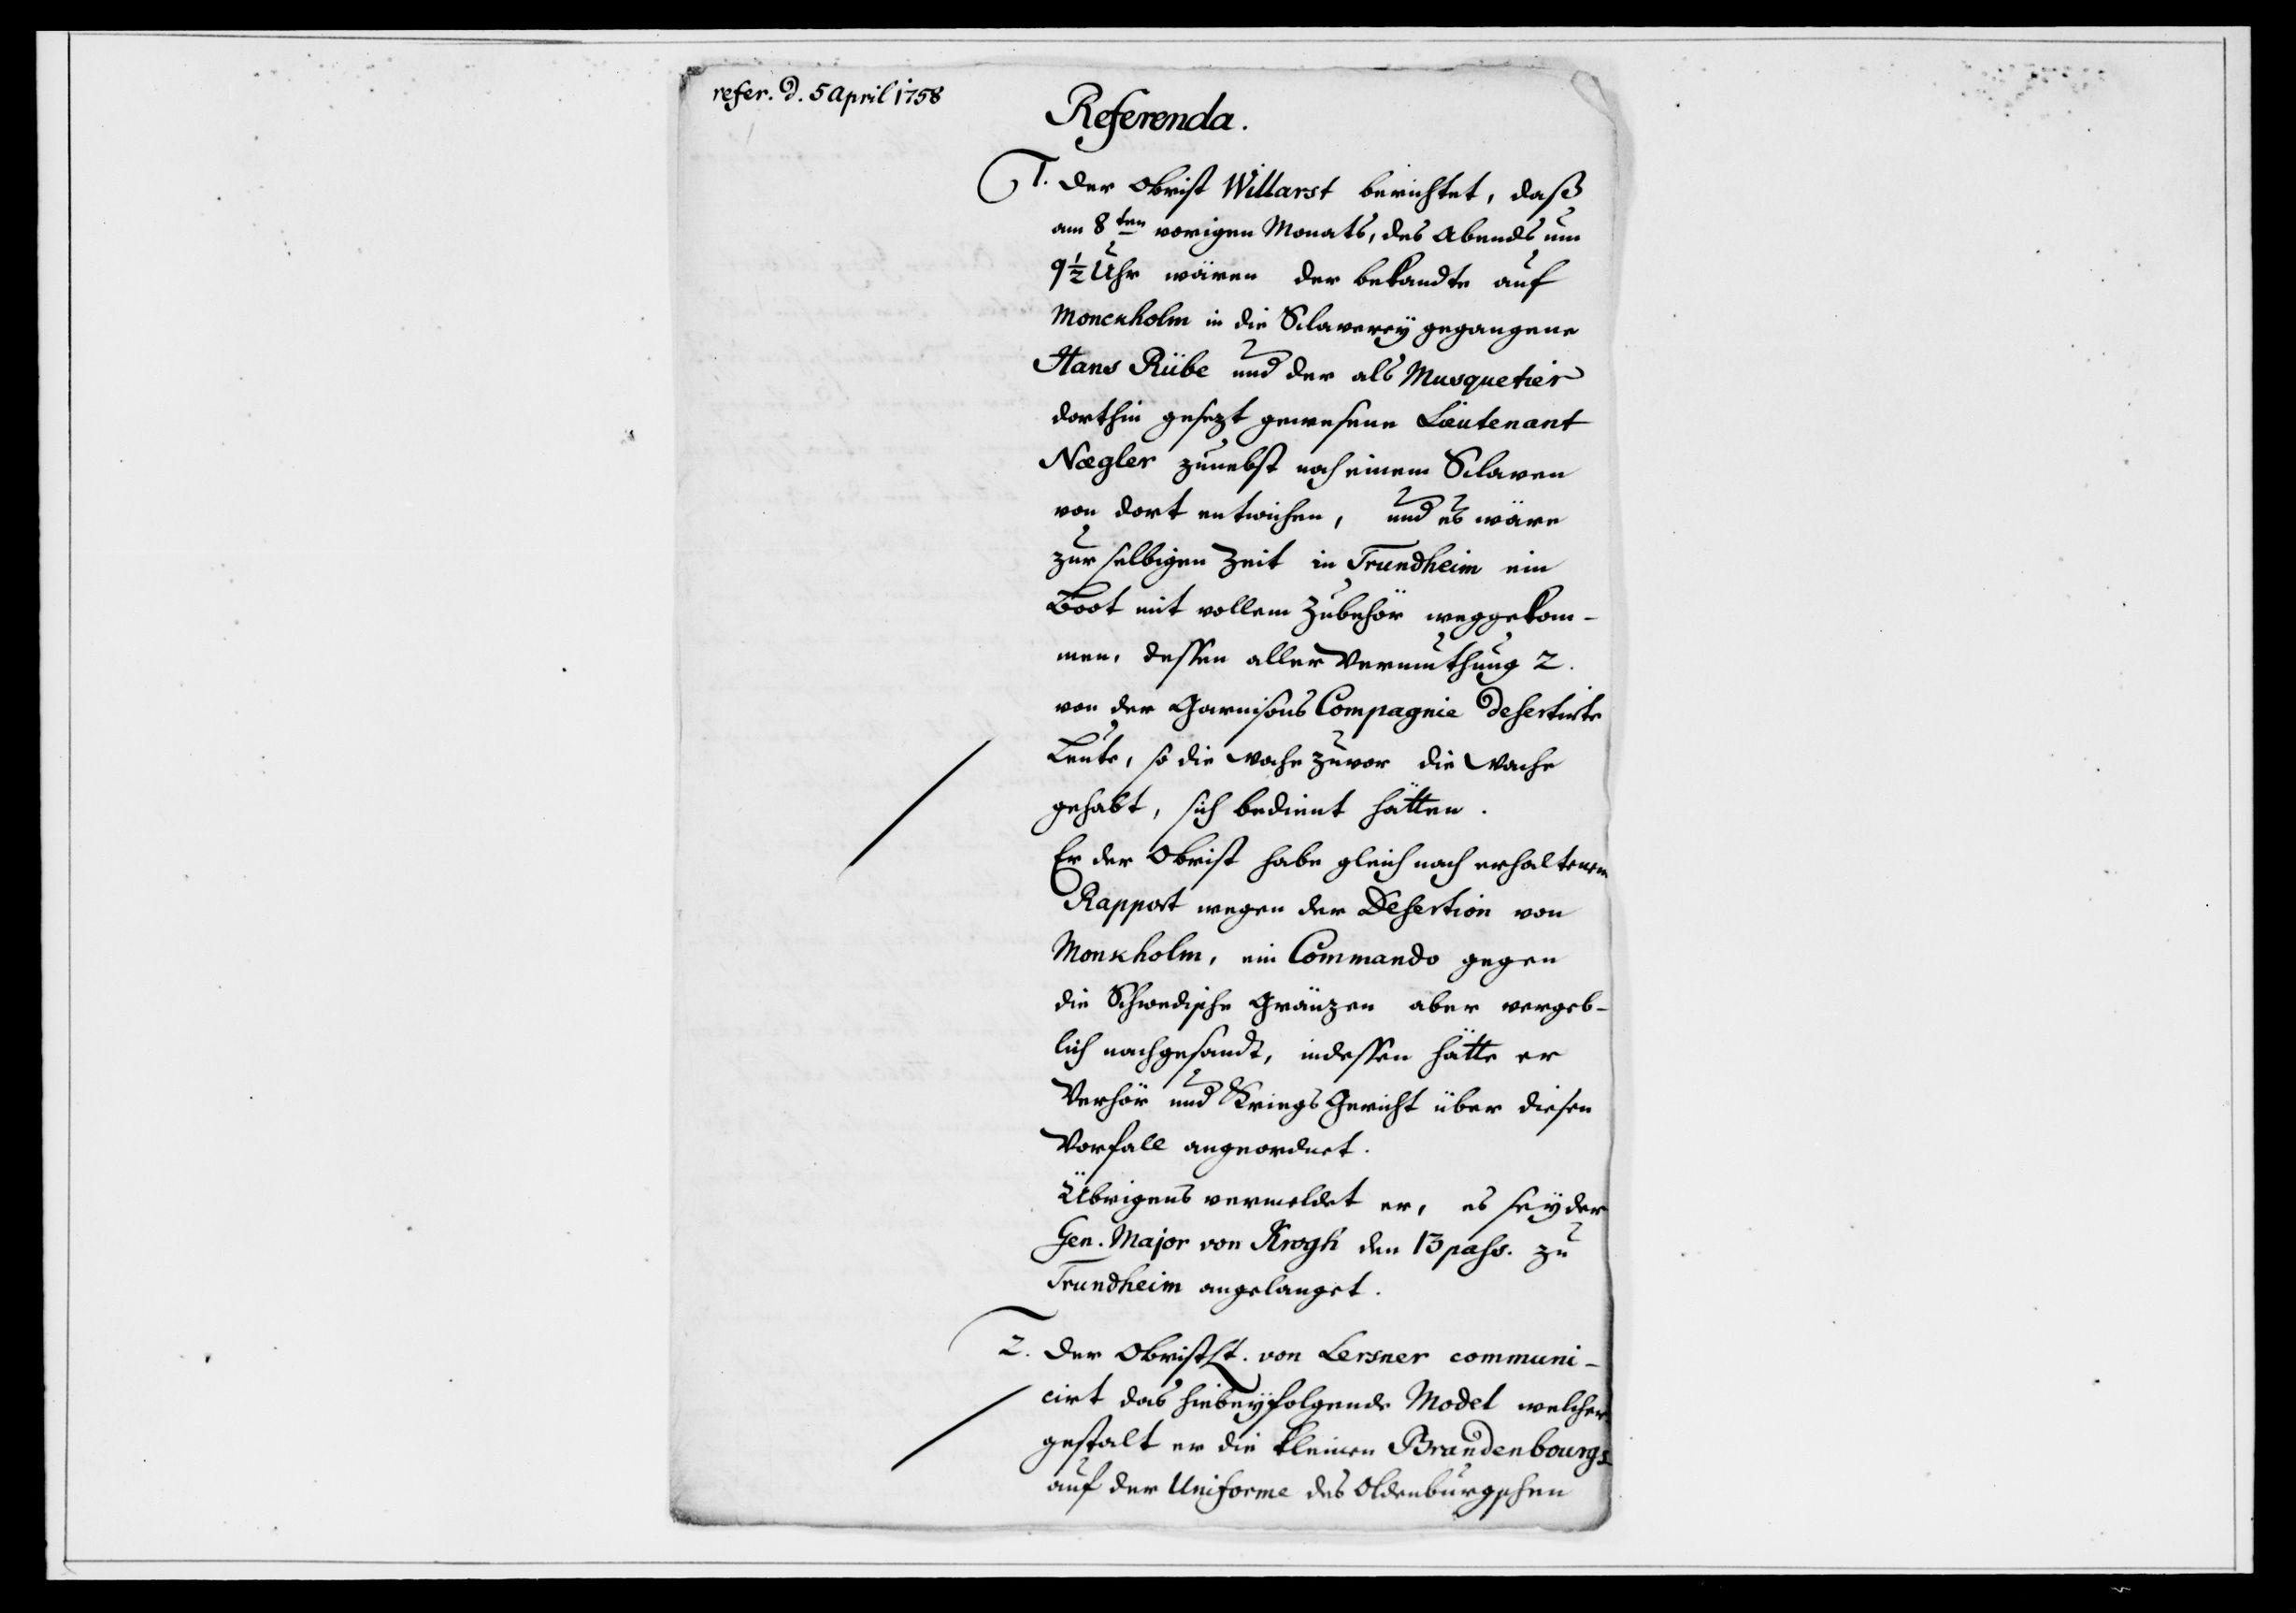 refer. d. 5 April 1758
Referenda.
1. Der Obrist Willarst berichtet, daß
am 8ten vorigen Monats, des Abends um
9½ Uhr wären der bekandte auf
Monckholm in die Sclaverey gegangene
Hans Rübe und der als Musquetier
dorthin gesezt gewesene Lieutenant
Nægler zunebst noch einem Sclaven
von dort entwichen, und es wäre
zur selbigen Zeit in Trundheim ein
Boot mit vollem Zubehör weggekom-
men, dessen aller Vermuthung 2.
von der Garnisons Compagnie desertirte
Leute, so die Woche zuvor die Wache
gehabt, sich bedient hätten.
Er der Obrist habe gleich nach erhaltenem
Rapport wegen der Desertion von
Monkholm, ein Commando gegen
die Schwedische Gräntzen aber vergeb-
lich nachgesandt, indessen hätte er
Verhör und KriegsGericht über diesen
Vorfall angeordnet.
Übrigens vermeldet er, es sey der
Gen. Major von Krogh den 13 pass. zu
Trundheim angelanget.
2. Der ObristLt. von Lersner communi-
cirt das hiebeyfolgende Model welcher-
gestalt er die kleinen Brandenbourgs
auf der Uniforme des Oldenburgschen